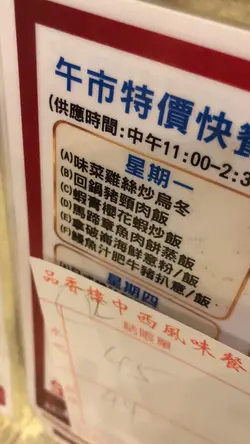 午市特價快
(供應時間:中午11:00-2:3
星期一
(A)味菜雞絲炒烏冬
(B)回鍋豬頸肉飯
(C)蝦膏櫻花蝦炒飯
(D)馬蹄章魚肉餅蒸飯
(E)拿破崙海鮮意粉/飯
(F)鰻魚汁肥牛豬扒意/飯
星期四
品香樓中西風味餐
結賬單